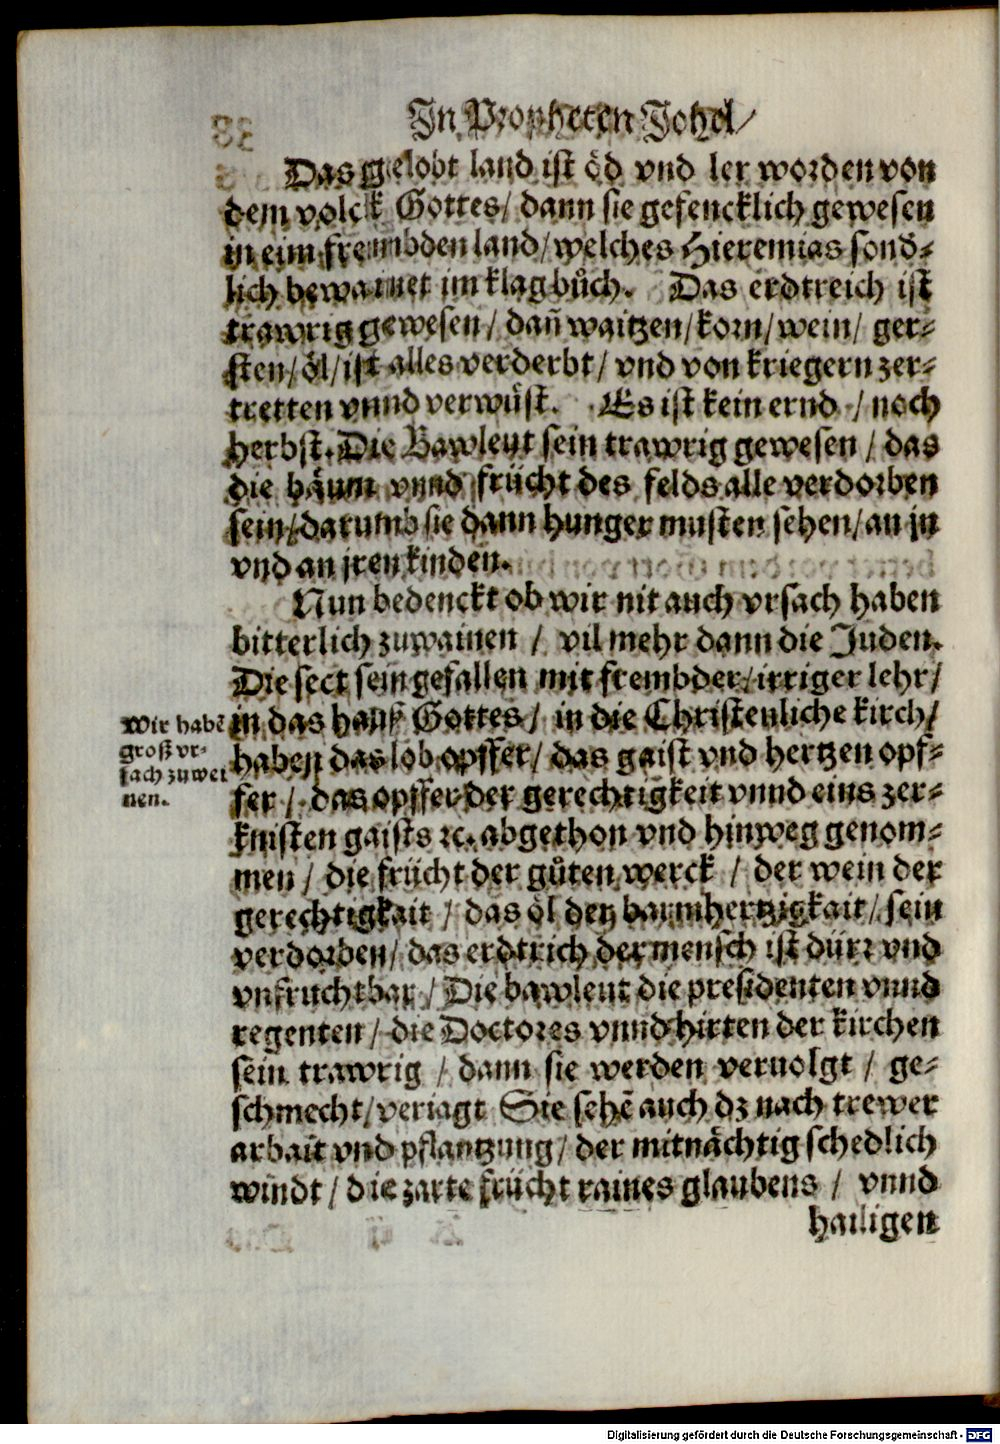 In Propheten Johel/
Das gelobt land ist öd vnd ler worden von
dem volck Gottes/ dann sie gefencklich gewesen
in eim frembden land/ welches Hieremias sond-
lich bewainet im klagbůch. Das erdtreich ist
trawrig gewesen/ dañ waitzen/ korn/ wein/ ger-
sten/ öl/ ist alles verderbt/ vnd von kriegern zer-
tretten vnnd verwüst. Es ist kein ernd / noch
herbst. Die Bawleut sein trawrig gewesen / das
die bäum vnnd frücht des felds alle verdorben
sein/ darumb sie dann hunger musten sehen/ an jn
vnd an jren kinden.
Nun bedenckt ob wir nit auch vrsach haben
bitterlich zuwainen / vil mehr dann die Juden.
Die sect sein gefallen mit frembder/ irriger lehr/
Wir habē
groß vr-
sach zuwei
nen.
in das hauß Gottes/ in die Christenliche kirch/
haben das lobopffer/ das gaist vnd hertzen opf-
fer / das opffer der gerechtigkeit vnnd eins zer-
knisten gaists ꝛc. abgethon vnd hinweg genom-
men / die frücht der gůten werck / der wein der
gerechtigkait / das öl der barmhertzigkait / sein
verdorben/ das erdtrich der mensch ist dürr vnd
vnfruchtbar / Die bawleut die presidenten vnnd
regenten / die Doctores vnnd hirten der kirchen
sein trawrig / dann sie werden veruolgt / ge-
schmecht/ veriagt Sie sehē auch dz nach trewer
arbait vnd pflantzung/ der mitnächtig schedlich
windt / die zarte frücht raines glaubens / vnnd
hailigen
Digitalisierung gefördert durch die Deutsche Forschungsgemeinschaft - DFG